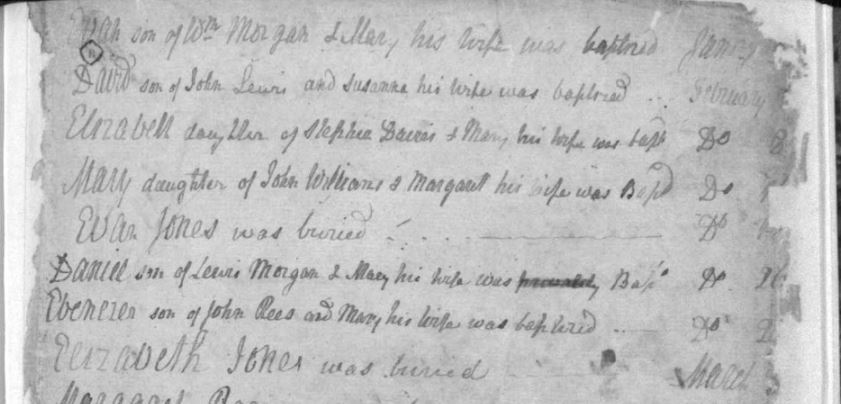 Evan son of Wm Morgan & Mary his wife was baptized Janry
David son of John Lewis and Susanna his wife was baptized .. February
Elizabeth daughter of Stephen Davies & Mary his wife was bapt Do 8
Mary daughter of John Williams & Margarett his wife was Bapd Do
Evan Jones was buried Do
Daniel son of Lewis Morgan & Mary his wife was Bapd Do
Ebenezer son of John Rees and Mary his wife was baptized .. Do 2
Elizabeth Jones was buried March
Margaret